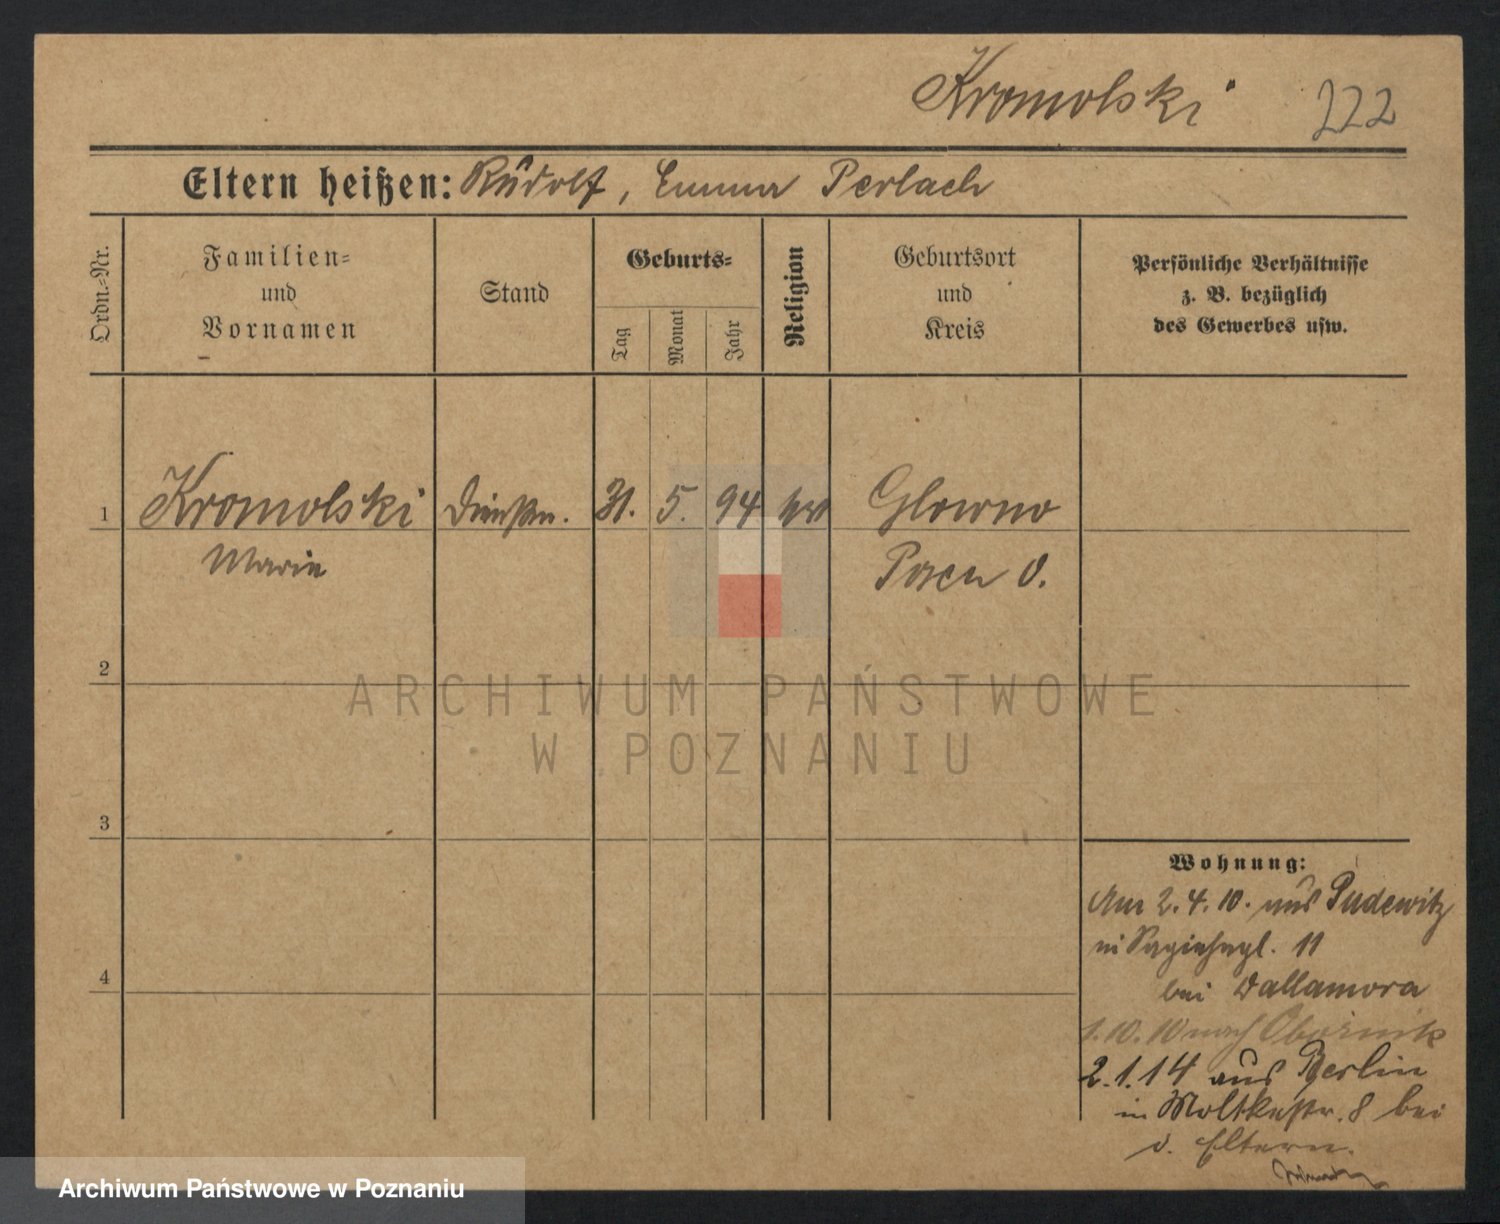 Kromolski 222
Eltern heißen: Rudolf, Emma Perlach
Ordn.-Nr.
Familien-
und
Vornamen
Stand
Geburts-
Tag
Monat
Jahr
Religion
Geburtsort
und
Kreis
Persönliche Verhältnisse
z. B. bezüglich
des Gewerbes usw.
1 Kromolski Dienstm. 31. 5. 94 Glowno
Marie Posen O.
2
ARCHIWUM PAŃSTWOWE
W POZNANIU
3
Wohnung:
Am 2.4.10. aus Pudewitz
in 11
4
bei Dallamora
1.10.10 nach Obornik
2.1.14 aus Berlin
in Moltkestr. 8 bei
d. Eltern.
Archiwum Państwowe w Poznaniu